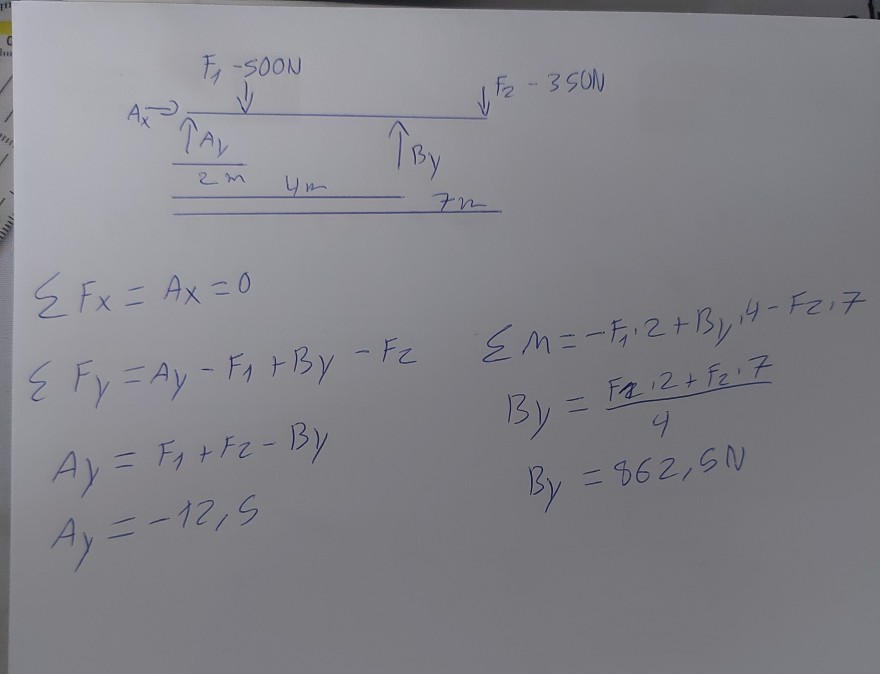 F1 - 500N
F2 - 350N
Ax
Ay
By
2 m
4m
7m
Σ Fx = Ax = 0
Σ Fy = Ay - F1 + By - F2
Ay = F1 + F2 - By
Ay = -12,5
Σ M = -F1.2 + By.4 - F2.7
By = F1.2 + F2.7
4
By = 862,5N